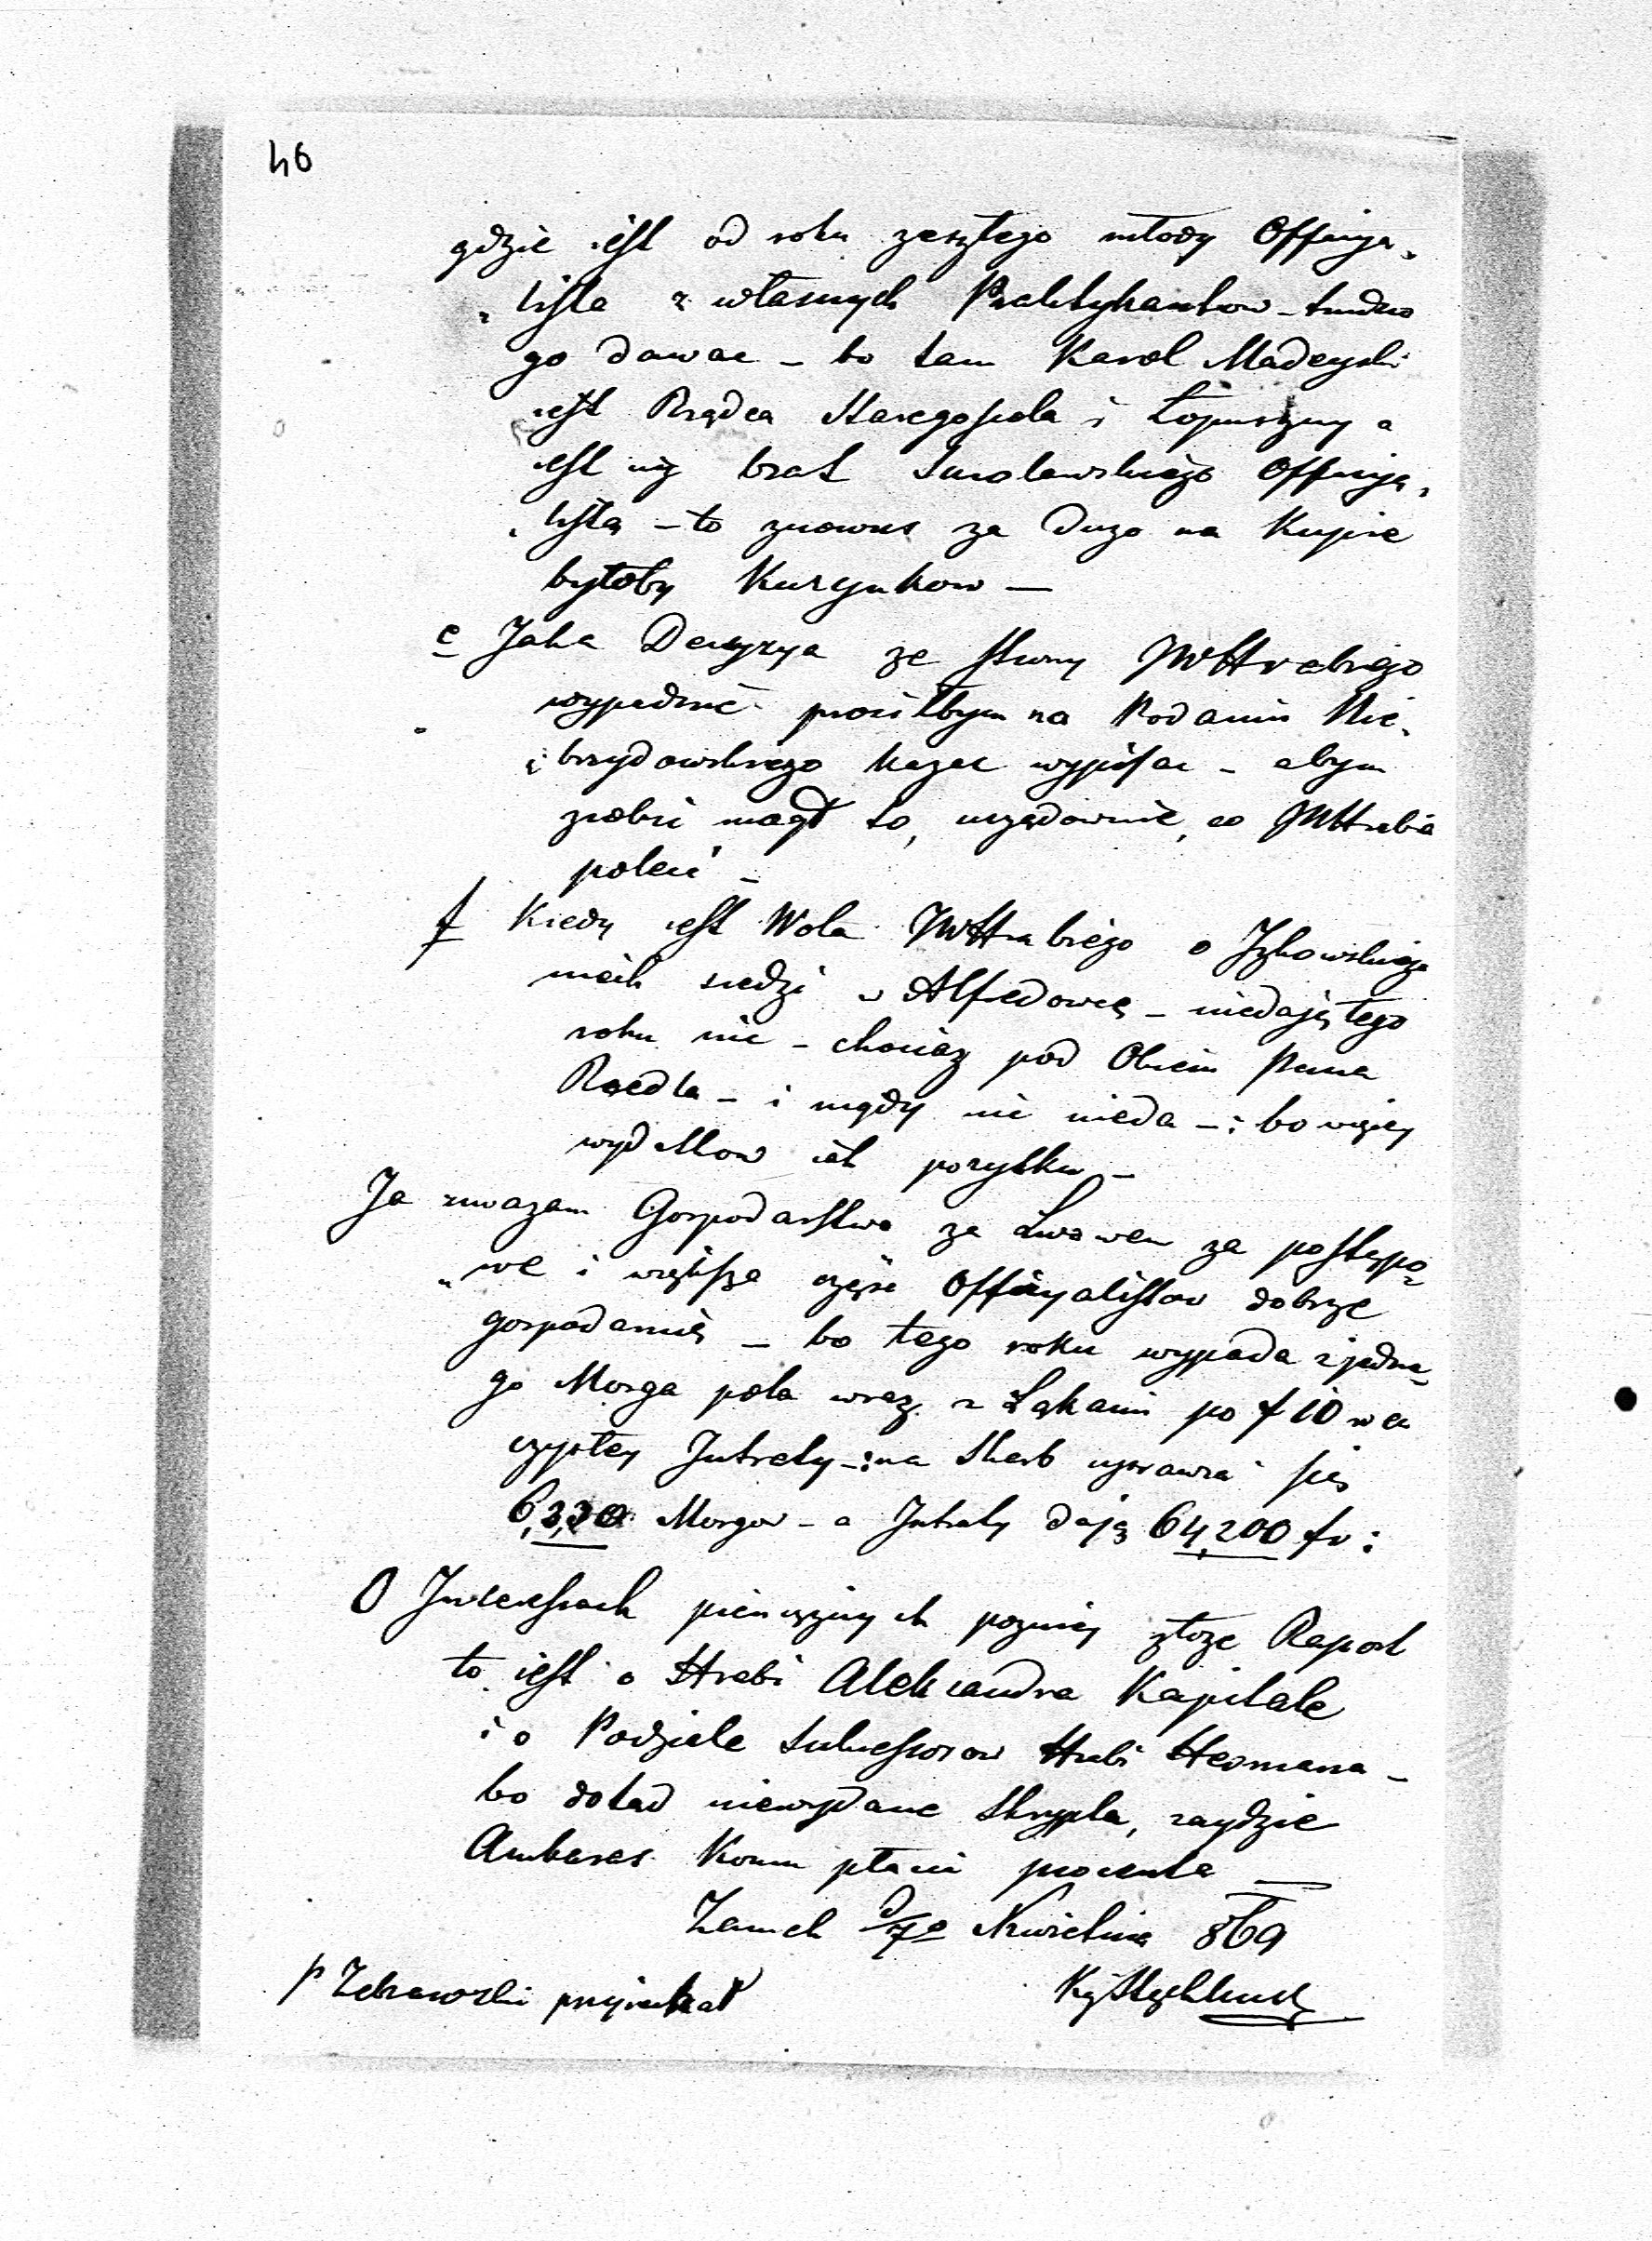 46
gdzie iest od roku zeszłego młody Offiya„
„lista z własnych Praktykantow – trudno
go dawac – bo tam Karol Madeyski
iest Rządca Staregosiola i Łopuszny a
iest iuż brat Smolewskiego Offiya„
„listą – to znowus za duzo na Kupie
byłoby Kuzynkow —
e Jaka Decyzya ze strony JWHrabiego
wypadnie prosiłbym na Podaniu Nie„
„brzydowskiego kazac wypisac – abym
zrobic mogł to, urzędownie, co JWHrabia
poleci –
f Kiedy iest Wola JWHrabiego o Izkowskiego
niech siedzi w Alfredowce – niedają tego
roku nic – chociaz pod Okiem Pana
Raedla – i nigdy nic nieda –: bo więcy
wydatkow iak pozytku –
Ja uwazam Gospodarstwo za Lwowem za postępo„
„we i większa częsc Offiyalistow dobrze
gospodaruią – bo tego roku wypada z jedne„
go Morga pola wraz z Łąkami po f 10 wa
czystey Intraty –: na Skarb uprawia się
6,220 Morgow – a Intraty dają 64,200 fr:
O Interessach pieniężnych pozniey złoze Raport
to iest o Hrabi Aleksandra Kapitale
i o Podziele Sukcessorow Hrabi Hermana –
bo dotad niewydane Skrypta, zaydzie
Ambaras Komu płacic procenta —
Zamek d/7º Kwietnia 869
P Zebrawski przyiechał